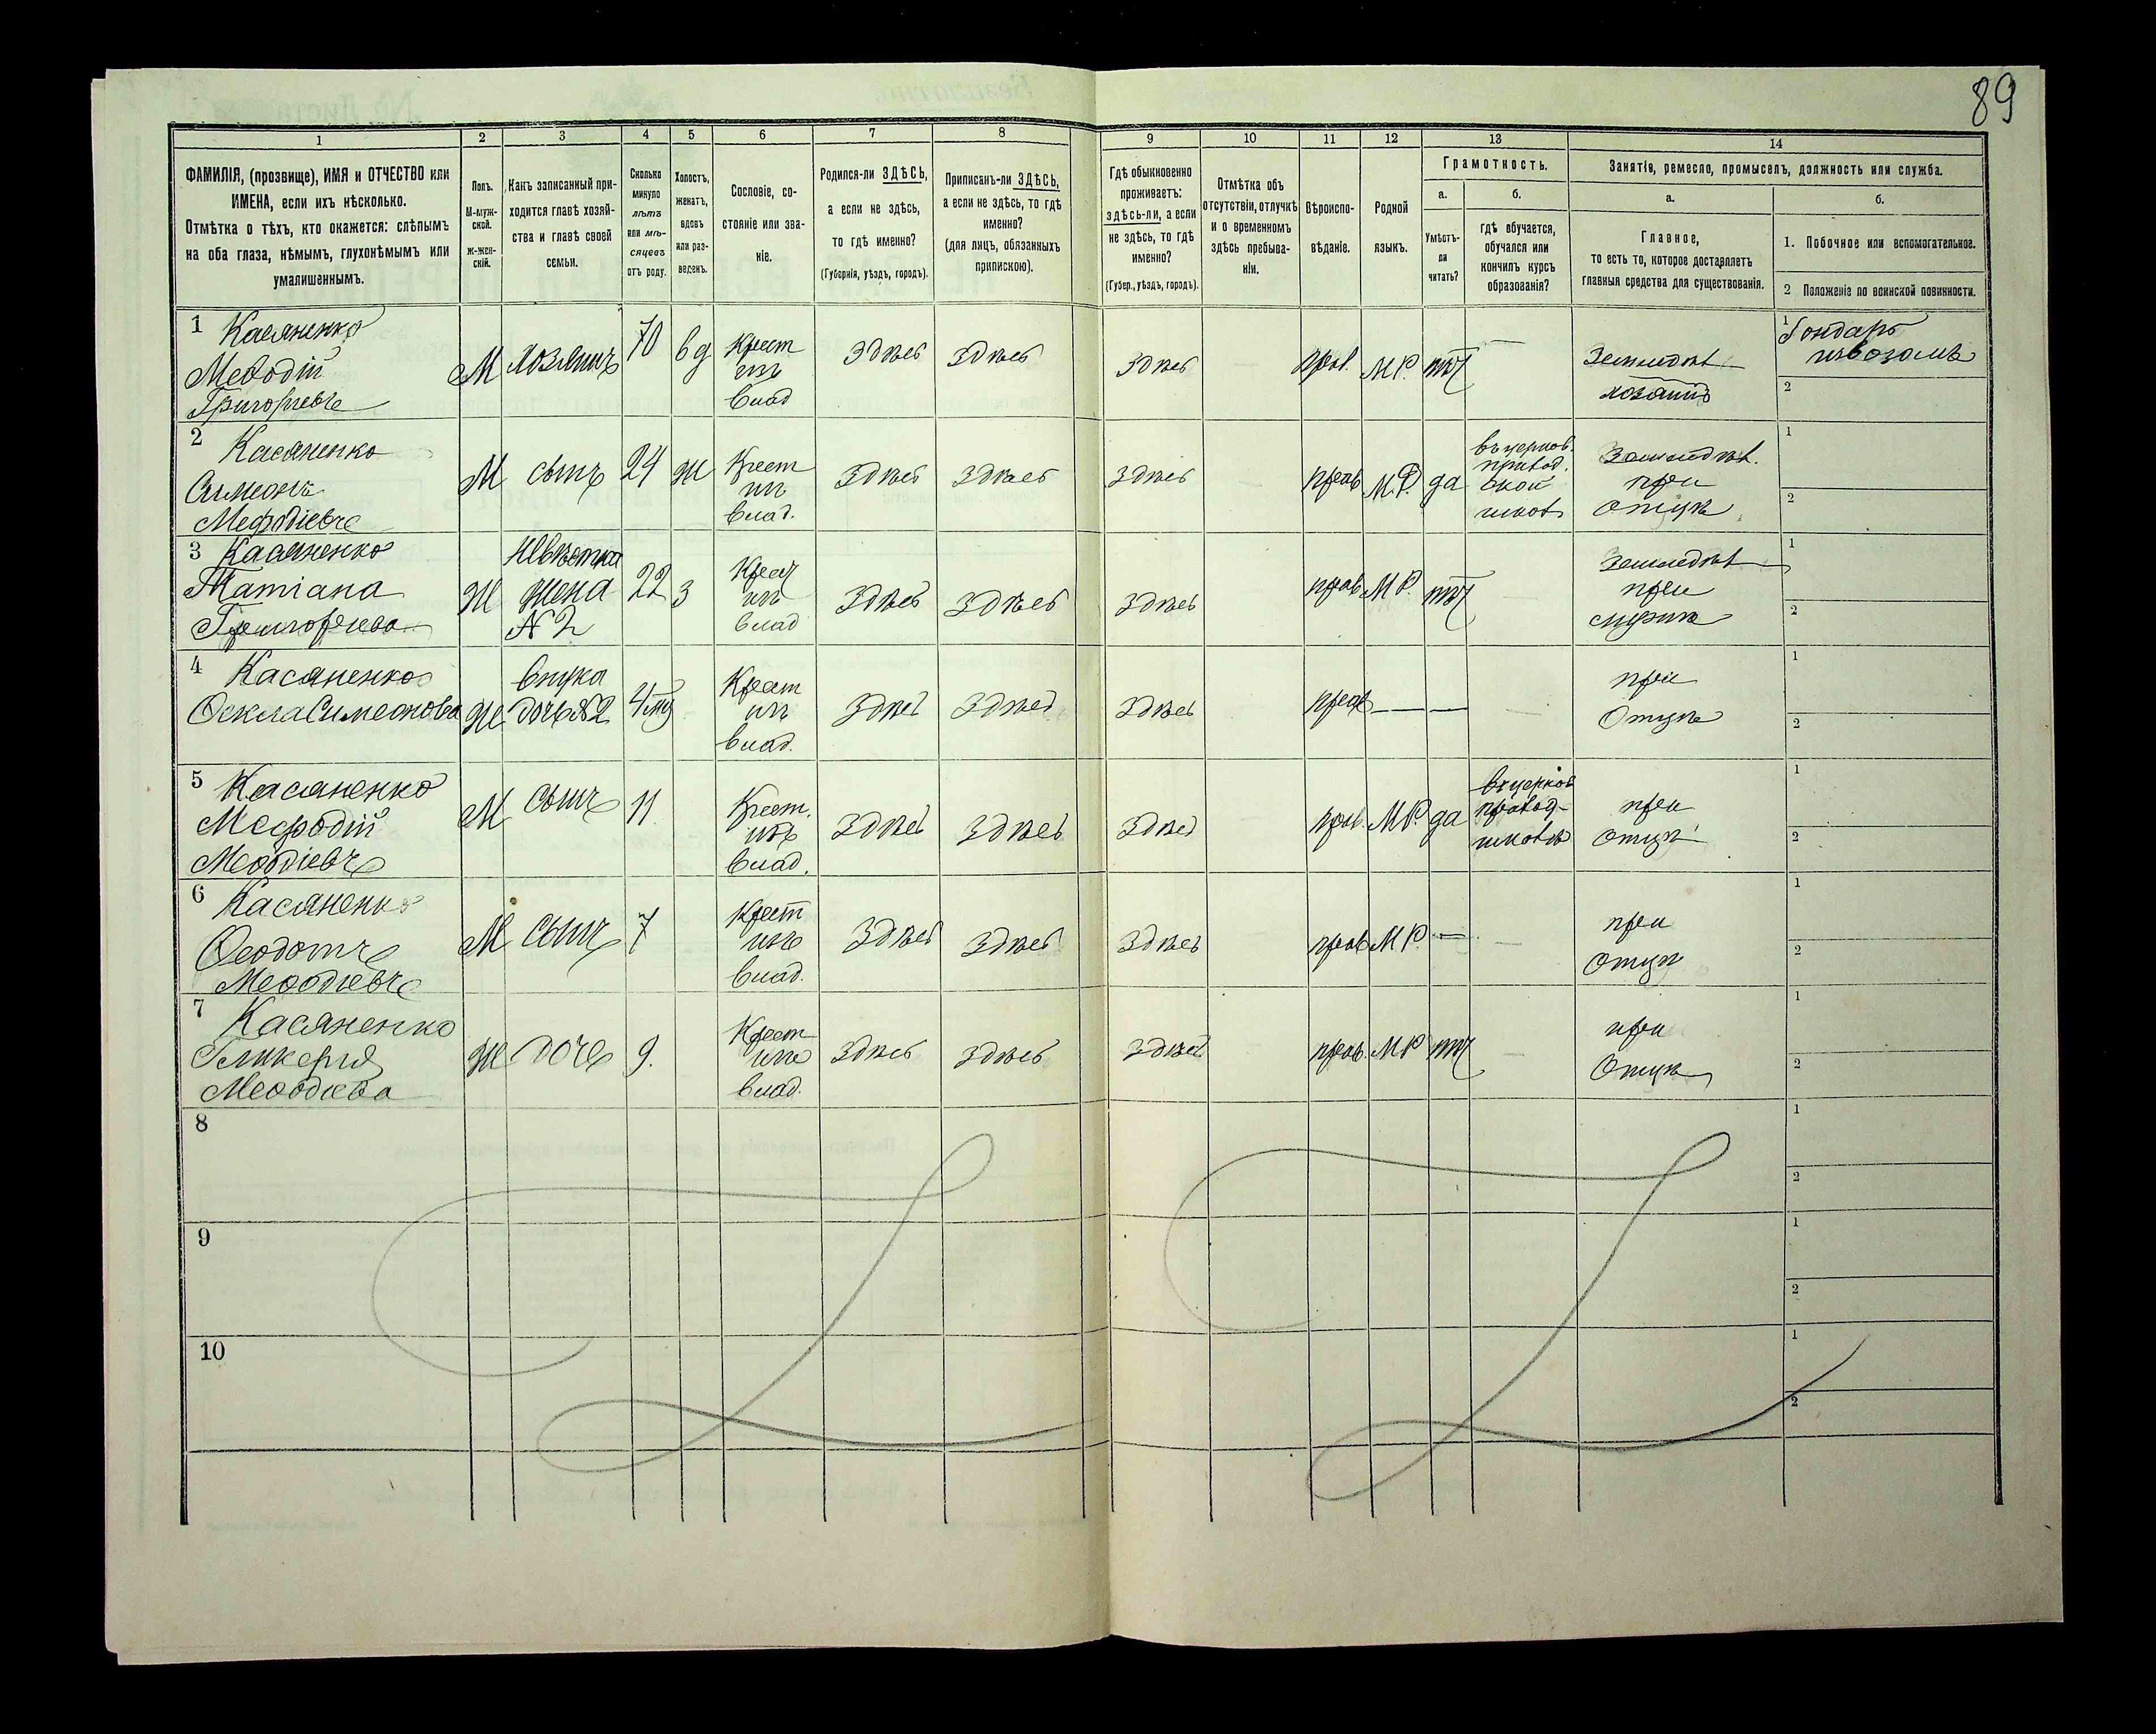 89
1
2
3
4
5
6
7
8
9
10
11
12
13
14
ФАМИЛІЯ, (прозвище), ИМЯ и ОТЧЕСТВО или
ИМЕНА, если ихъ нѣсколько.
Отмѣтка о тѣхъ, кто окажется: слѣпымъ
на оба глаза, нѣмымъ, глухонѣмымъ или
умалишеннымъ.
Полъ.
М-муж-
ской.
ж-жен-
скій.
Какъ записанный при-
ходится главѣ хозяй-
ства и главѣ своей
семьи.
Сколько
минуло
лѣтъ
или мѣ-
сяцевъ
отъ роду.
Холостъ,
женатъ,
вдовъ
или раз-
веденъ.
Сословіе, со-
стояніе или зва-
ніе.
Родился-ли ЗДѢСЬ,
а если не здѣсь,
то гдѣ именно?
(Губернія, уѣздъ, городъ).
Приписанъ-ли ЗДѢСЬ,
а если не здѣсь, то гдѣ
именно?
(для лицъ, обязанныхъ
припискою).
Гдѣ обыкновенно
проживаетъ:
здѣсь-ли, а если
не здѣсь, то гдѣ
именно?
(Губер., уѣздъ, городъ).
Отмѣтка объ
отсутствіи, отлучкѣ
и о временномъ
здѣсь пребыва-
ніи.
Вѣроиспо-
вѣданіе.
Родной
языкъ.
Грамотность.
а.
Умѣетъ-
ли
читать?
б.
гдѣ обучается,
обучался или
кончилъ курсъ
образованія?
Занятія, ремесло, промыселъ, должность или служба.
а.
Главное,
то есть то, которое доставляетъ
главныя средства для существованія.
б.
1. Побочное или вспомогательное.
2 Положеніе по воинской повинности.
1 Касяненко
Меѳодій
Григорьевъ
М
хозяинъ
70
вд
Крест
изъ
влад
здѣсь
здѣсь
здѣсь
прав.
М.Р.
нѣт
—
Земледѣл
хозяинъ
1 бондарь
извозомъ
2
2 Касяненко
Симеонъ
Мефодіевъ
М
сынъ
24
ж
Крест
изъ
влад.
здѣсь
здѣсь
здѣсь
прав
М.Р.
да
въ церков.
приход.
ской
школѣ
Земледѣл.
при
отцѣ
1
2
3 Касяненко
Татіана
Григорьева
Ж
Невѣстка
жена
№ 2
22
з
Крест
изъ
влад
здѣсь
здѣсь
здѣсь
прав
М.Р.
нѣт
Земледѣл
при
мужѣ
1
2
4 Касяненко
Ѳекла Симеонова
Ж
внука
дочь №2
Крест
изъ
влад.
здѣсь
здѣсь
здѣсь
прав
—
—
при
Отцѣ
1
2
5 Касяненко
Мефодій
Меѳодіевъ
М
сынъ
11
Крест.
изъ
влад.
здѣсь
здѣсь
здѣсь
прав.
М.Р.
да
въ церков
приход-
школѣ
при
отцѣ
1
2
6 Касяненко
Ѳеодотъ
Меѳодіевъ
М
сынъ
7
Крест
изъ
влад.
здѣсь
здѣсь
здѣсь
прав
М.Р.
—
при
Отцѣ
1
2
7 Касяненко
Гликерія
Меѳодіева
Ж
дочь
9.
Крест
изъ
влад.
здѣсь
здѣсь
здѣсь
прав.
М.Р.
нѣт
при
Отцѣ
1
2
8
1
2
9
1
2
10
1
2